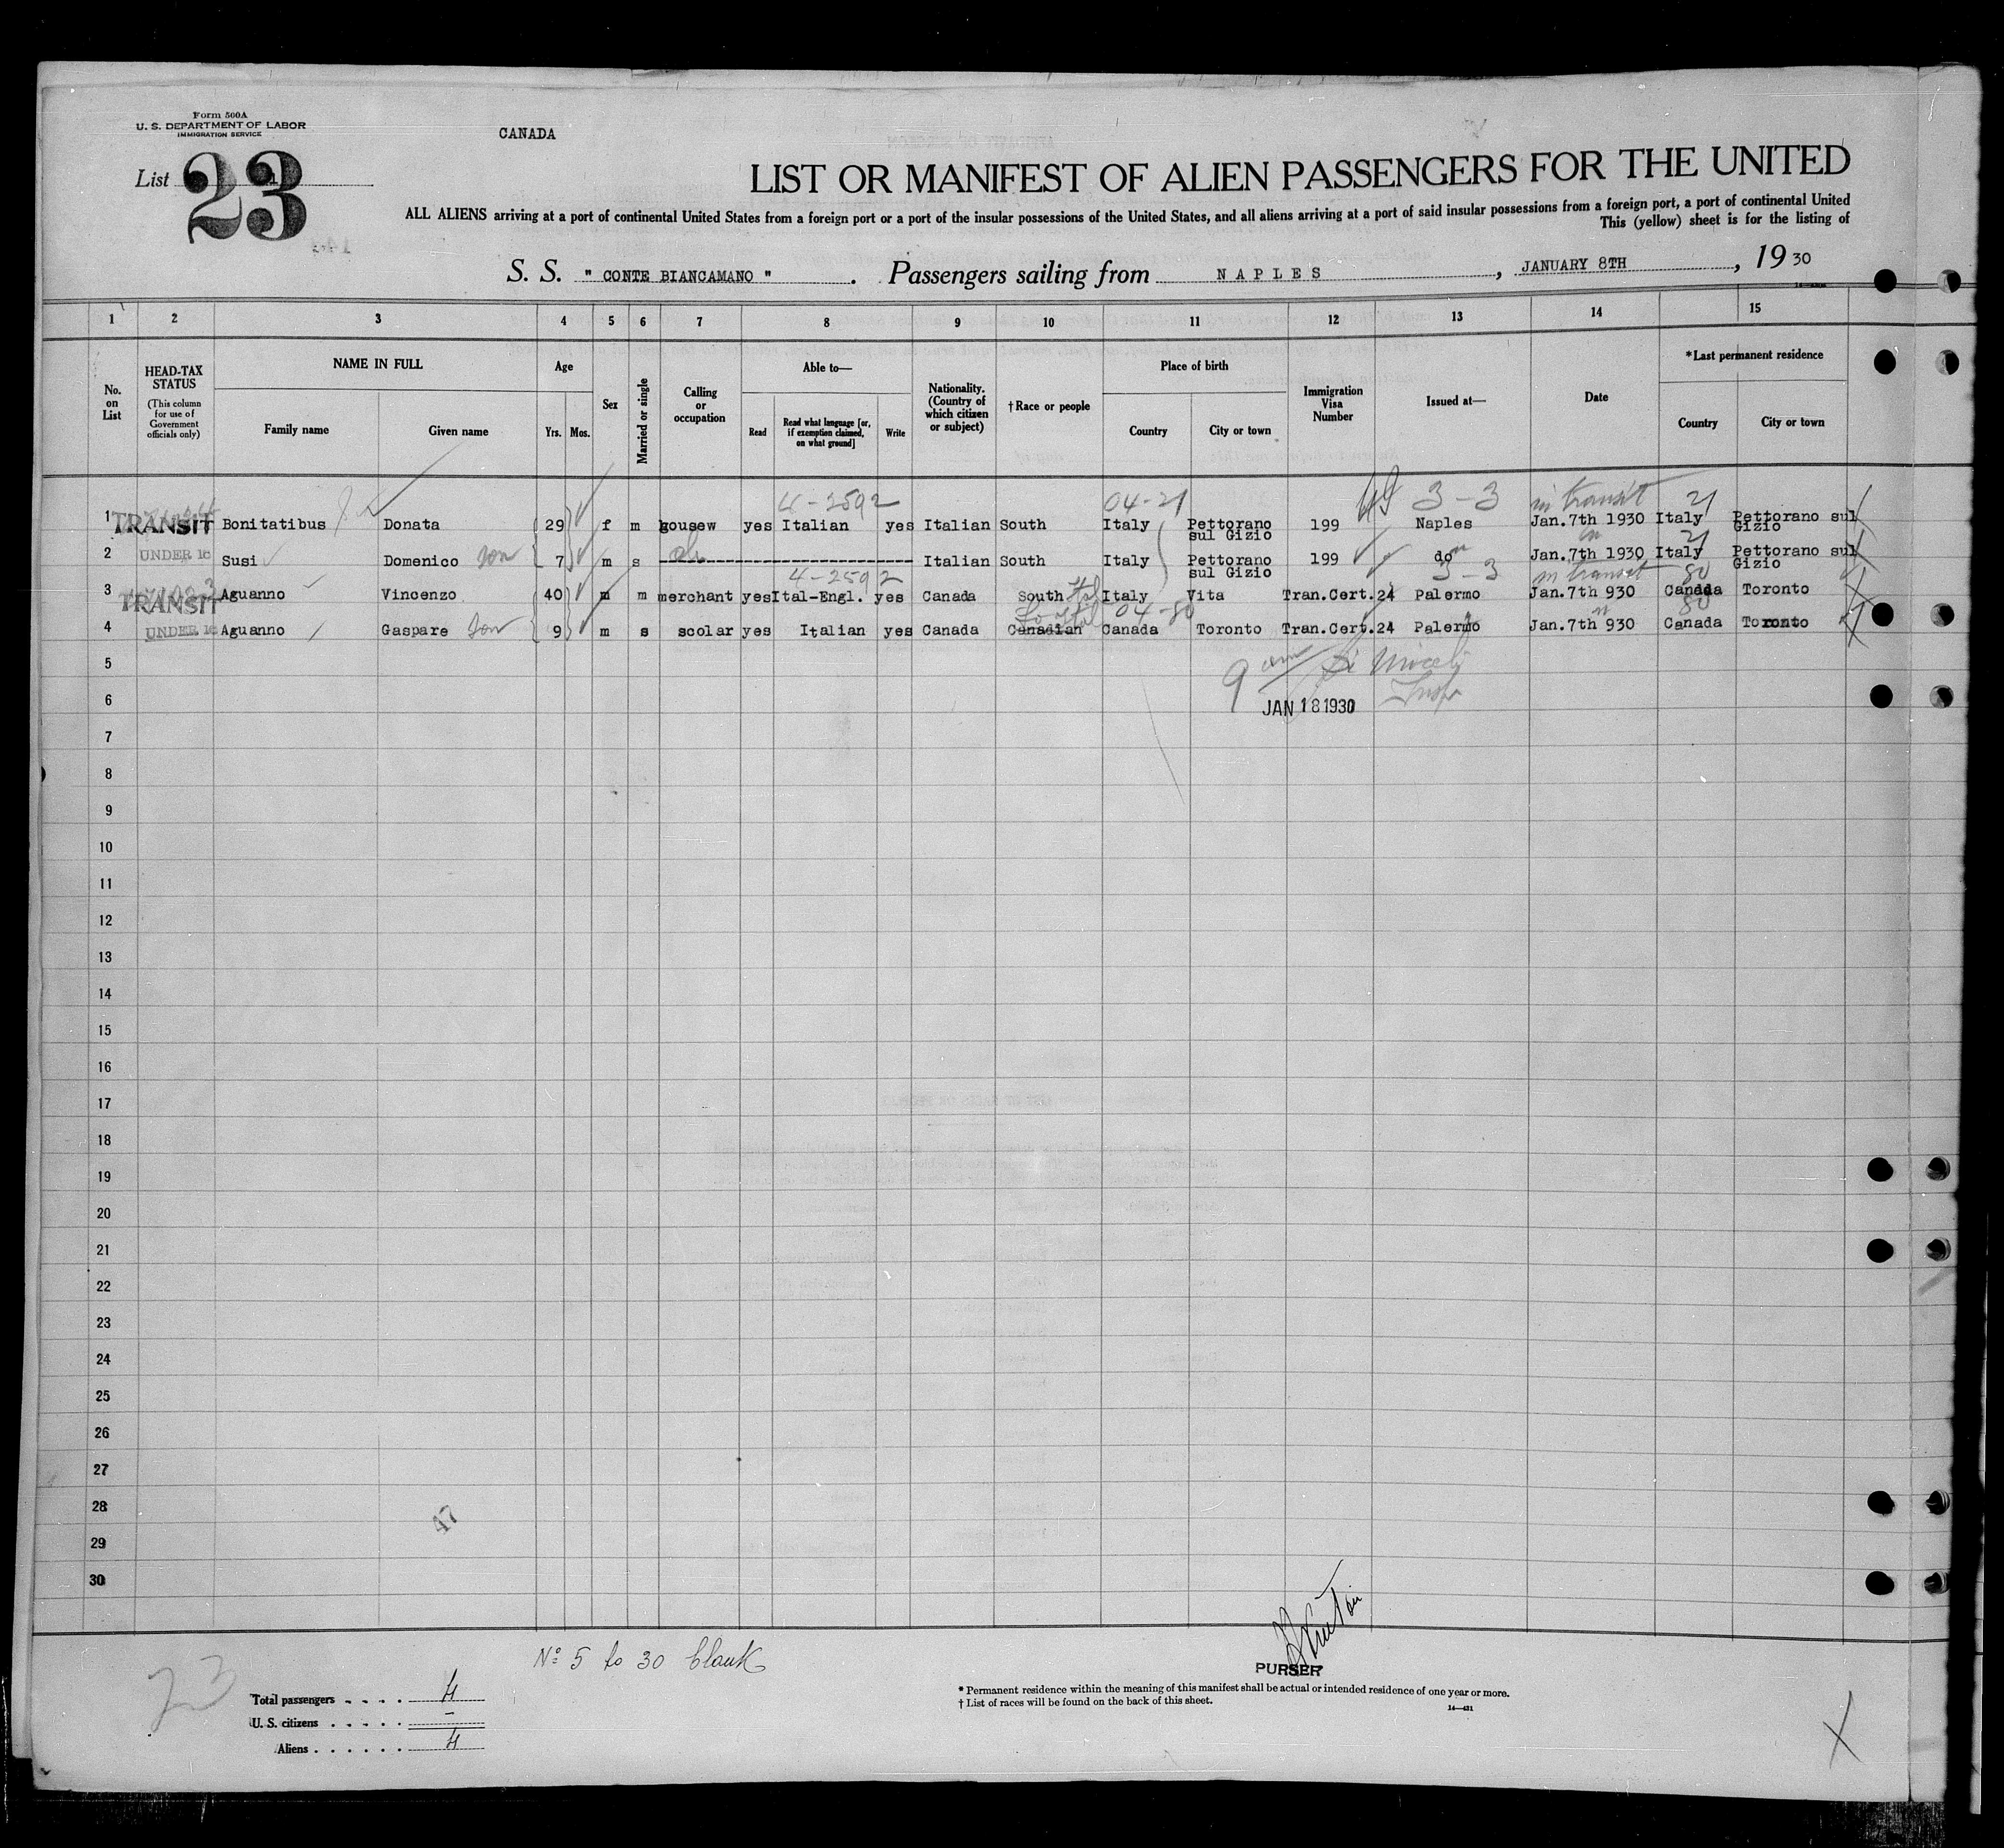 Form 500A
U. S. DEPARTMENT OF LABOR
IMMIGRATION SERVICE
CANADA
List 23
LIST OR MANIFEST OF ALIEN PASSENGERS FOR THE UNITED
ALL ALIENS arriving at a port of continental United States from a foreign port or a port of the insular possessions of the United States, and all aliens arriving at a port of said insular possessions from a foreign port, a port of continental United
This (yellow) sheet is for the listing of
S. S. " CONTE BIANCAMANO " . Passengers sailing from NAPLES , JANUARY 8TH , 19 30
1 2 3 4 5 6 7 8 9 10 11 12 13 14 15
No. on List
HEAD-TAX STATUS (This column for use of Government officials only)
NAME IN FULL
Family name Given name
Age
Yrs. Mos.
Sex
Married or single
Calling or occupation
Able to—
Read Read what language [or, if exemption claimed, on what ground] Write
Nationality. (Country of which citizen or subject)
† Race or people
Place of birth
Country City or town
Immigration Visa Number
Issued at—
Date
* Last permanent residence
Country City or town
4-2592 04-21 3-3 in transit 21
1 TRANSIT Bonitatibus Donata 29 f m housew yes Italian yes Italian South Italy Pettorano sul Gizio 199 Naples Jan.7th 1930 Italy Pettorano sul Gizio
21
2 UNDER 16 Susi Domenico son 7 m s ---------- Italian South Italy Pettorano sul Gizio 199 do Jan.7th 1930 Italy Pettorano sul Gizio
4-2592 3-3 in transit 80
3 TRANSIT Aguanno Vincenzo 40 m m merchant yes Ital-Engl. yes Canada South Ital Italy Vita Tran.Cert.24 Palermo Jan.7th 930 Canada Toronto
So Ital 04-80 80
4 UNDER 16 Aguanno Gaspare son 9 m s scolar yes Italian yes Canada Canadian Canada Toronto Tran.Cert.24 Palermo Jan.7th 930 Canada Toronto
5
9 am
6
JAN 18 1930 Insp
7
8
9
10
11
12
13
14
15
16
17
18
19
20
21
22
23
24
25
26
27
28
47
29
30
Nº 5 to 30 blank
PURSER
23
Total passengers . . . . 4
U. S. citizens . . . . . –
Aliens . . . . . . 4
* Permanent residence within the meaning of this manifest shall be actual or intended residence of one year or more.
† List of races will be found on the back of this sheet.
14—431
X